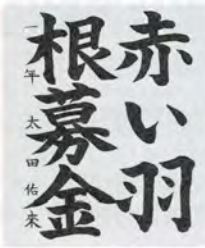 赤い羽
根募金
一年 太田佑来